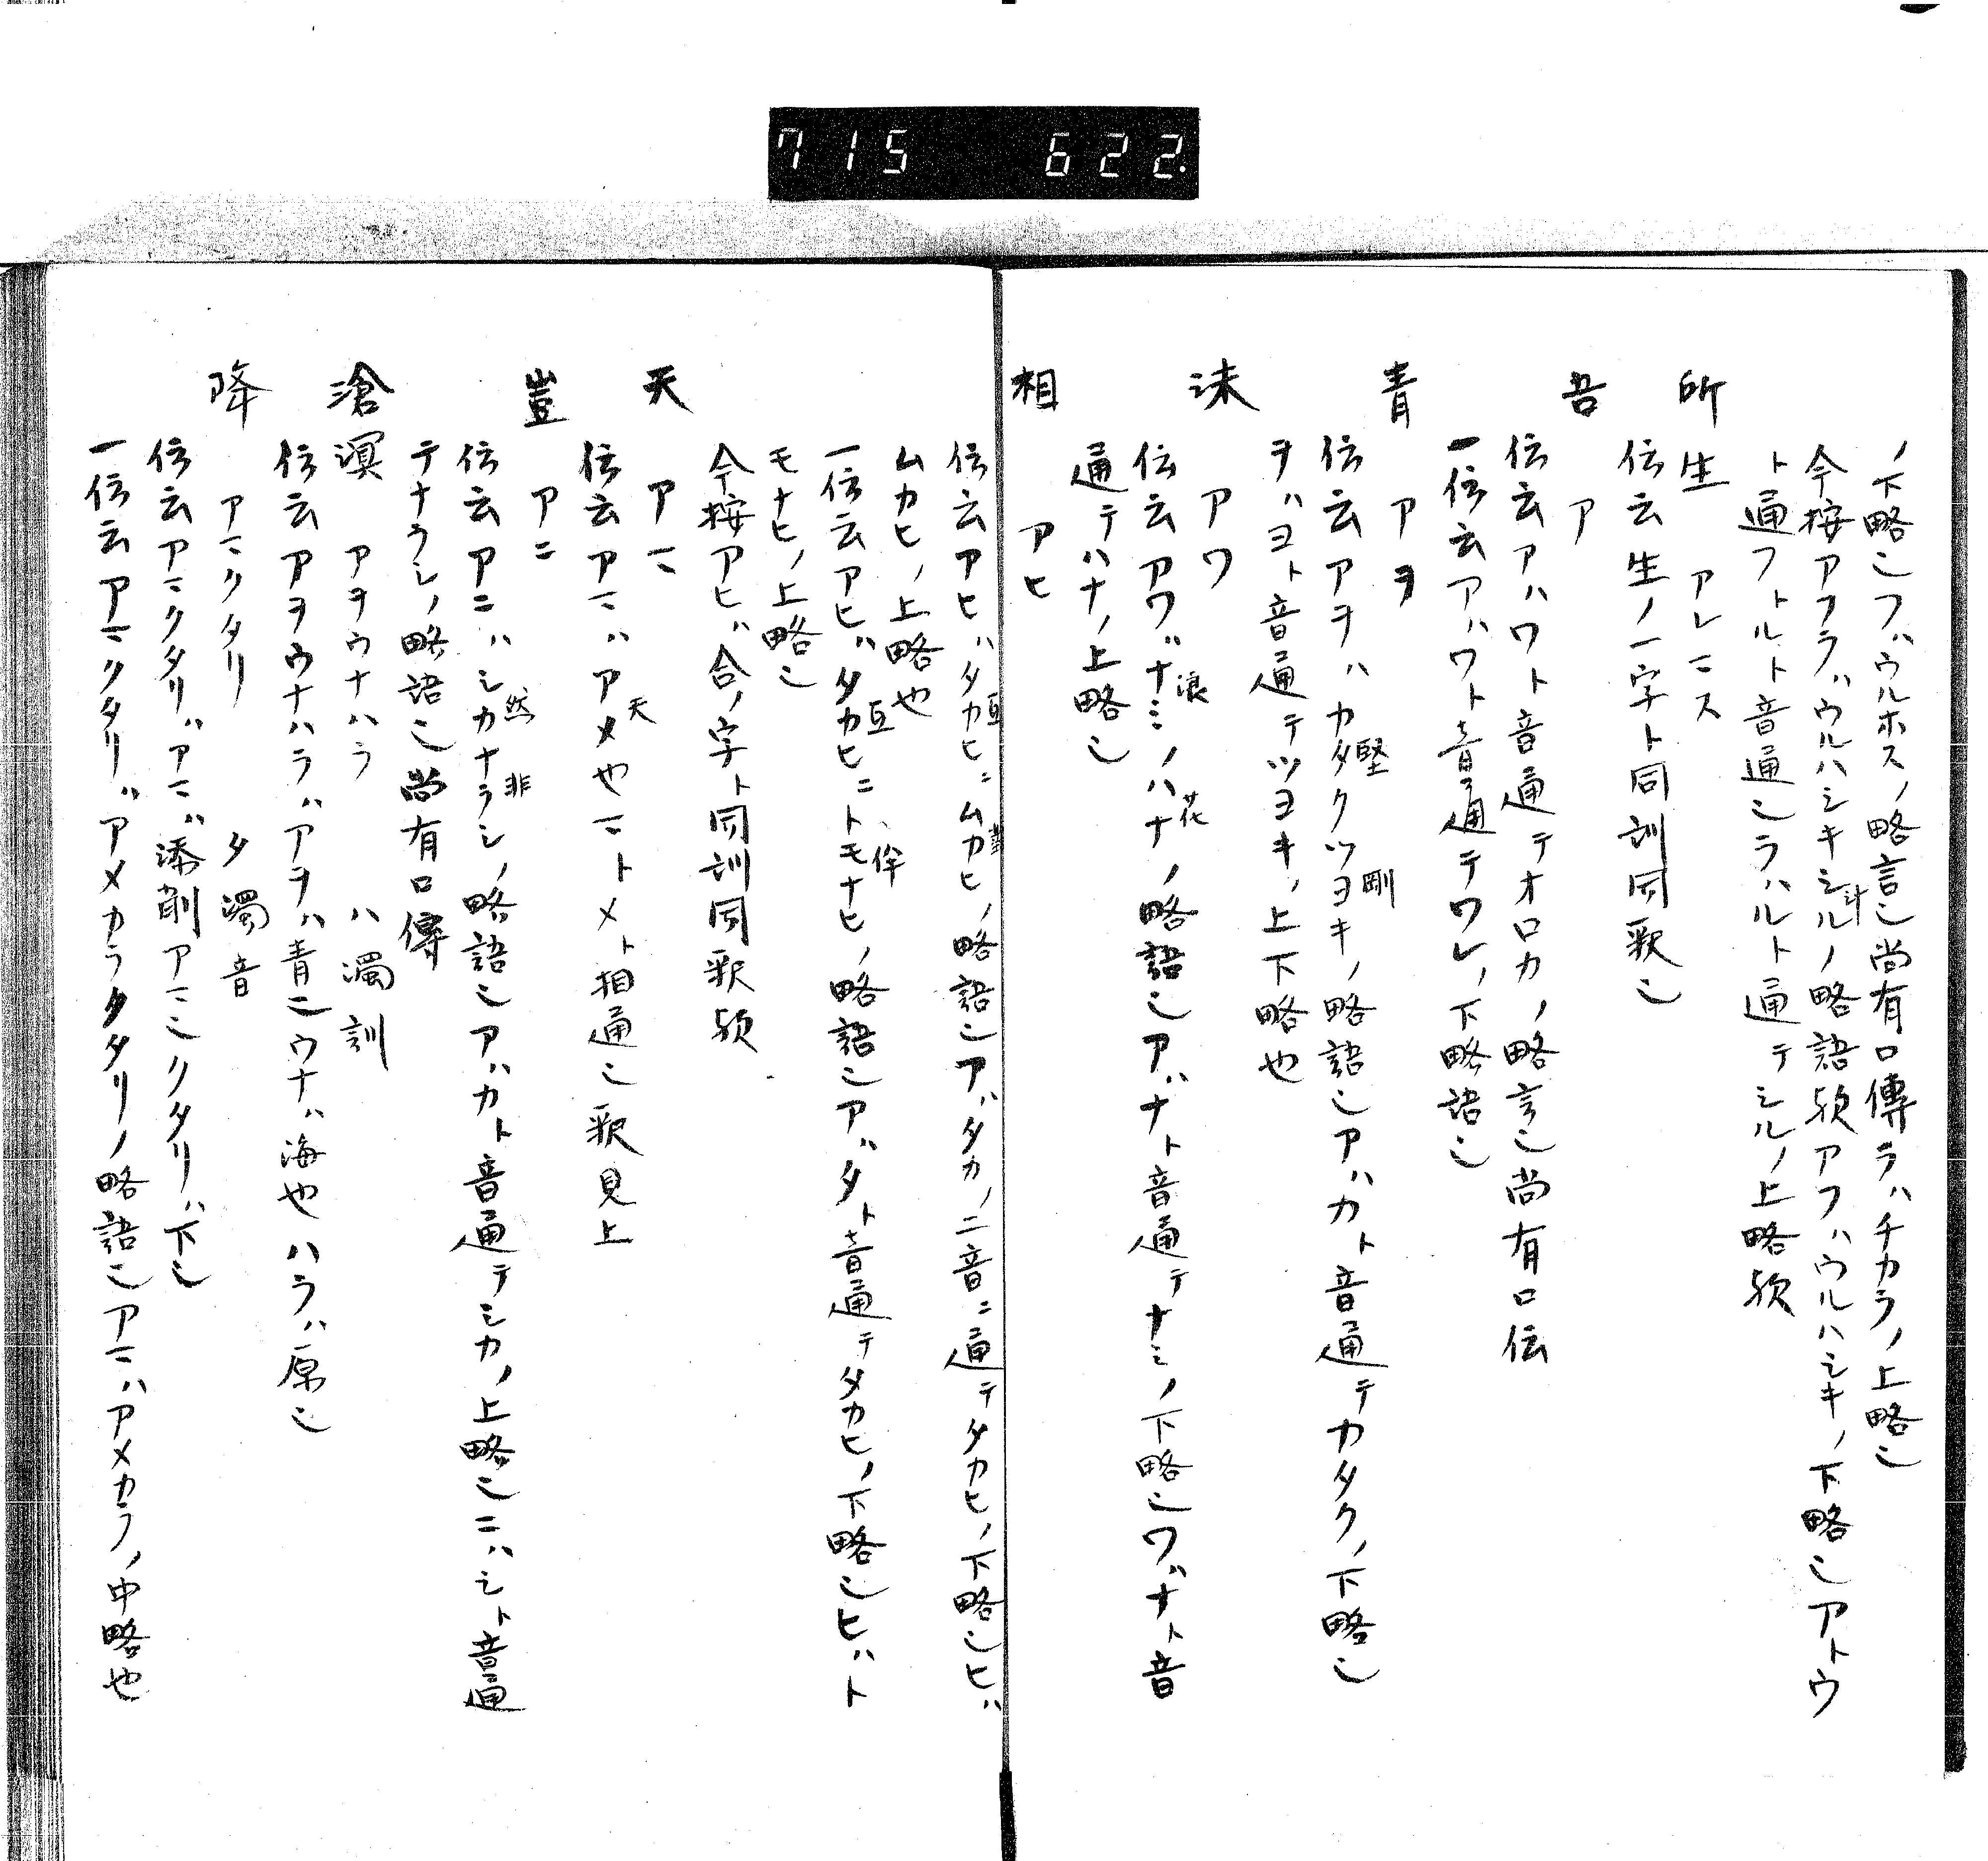 715 622.
ノ下略也フハウルホスノ略言也尚有口傳ラハチカラノ上略也
今按アフラハウルハシキシル汁ノ略語欤アフハウルハシキノ下略也アトウ
ト通フトルト音通也ラハルト通テシルノ上略欤
所生 アレマス
伝云生ノ一字ト同訓同釈也
吾 ア
伝云アハワト音通テオロカノ略言也尚有口伝
一伝云アハワト音通テワレノ下略語也
青 アヲ
伝云アヲハカタク堅ツヨキ剛ノ略語也アハカト音通テカタクノ下略也
ヲハヨト音通テツヨキノ上下略也
沫 アワ
伝云アワハナミ浪ノハナ花ノ略語也アハナト音通テナミノ下略也ワハナト音
通テハナノ上略也
相 アヒ
伝云アヒハタカヒ互ニムカヒノ略語也アハタカノ二音ニ通テタカヒノ下略也ヒハ
ムカヒノ上略也
一伝云アヒハタカヒ互ニトモナヒ伴ノ略語也アハタト音通テタカヒノ下略也ヒハト
モナヒノ上略也
今按アヒハ合ノ字ト同訓同釈欤
天 アマ
伝云アマハアメ天也マトメト相通也釈見上
豈 アニ
伝云アニハシカ然ナラシ非ノ略語也アハカト音通テシカノ上略也ニハシト音通
テナラシノ略語也尚有口傳
滄溟 アヲウナハラ ハ濁訓
伝云アヲウナハラハアヲハ青ニウナハ海也ハラハ原也
降 アマクタリ タ濁音
伝云アマクタリハアマハ添削アマ也クタリハ下也
一伝云アマクタリハアメカラクタリノ略語也アマハアメカラノ中略也